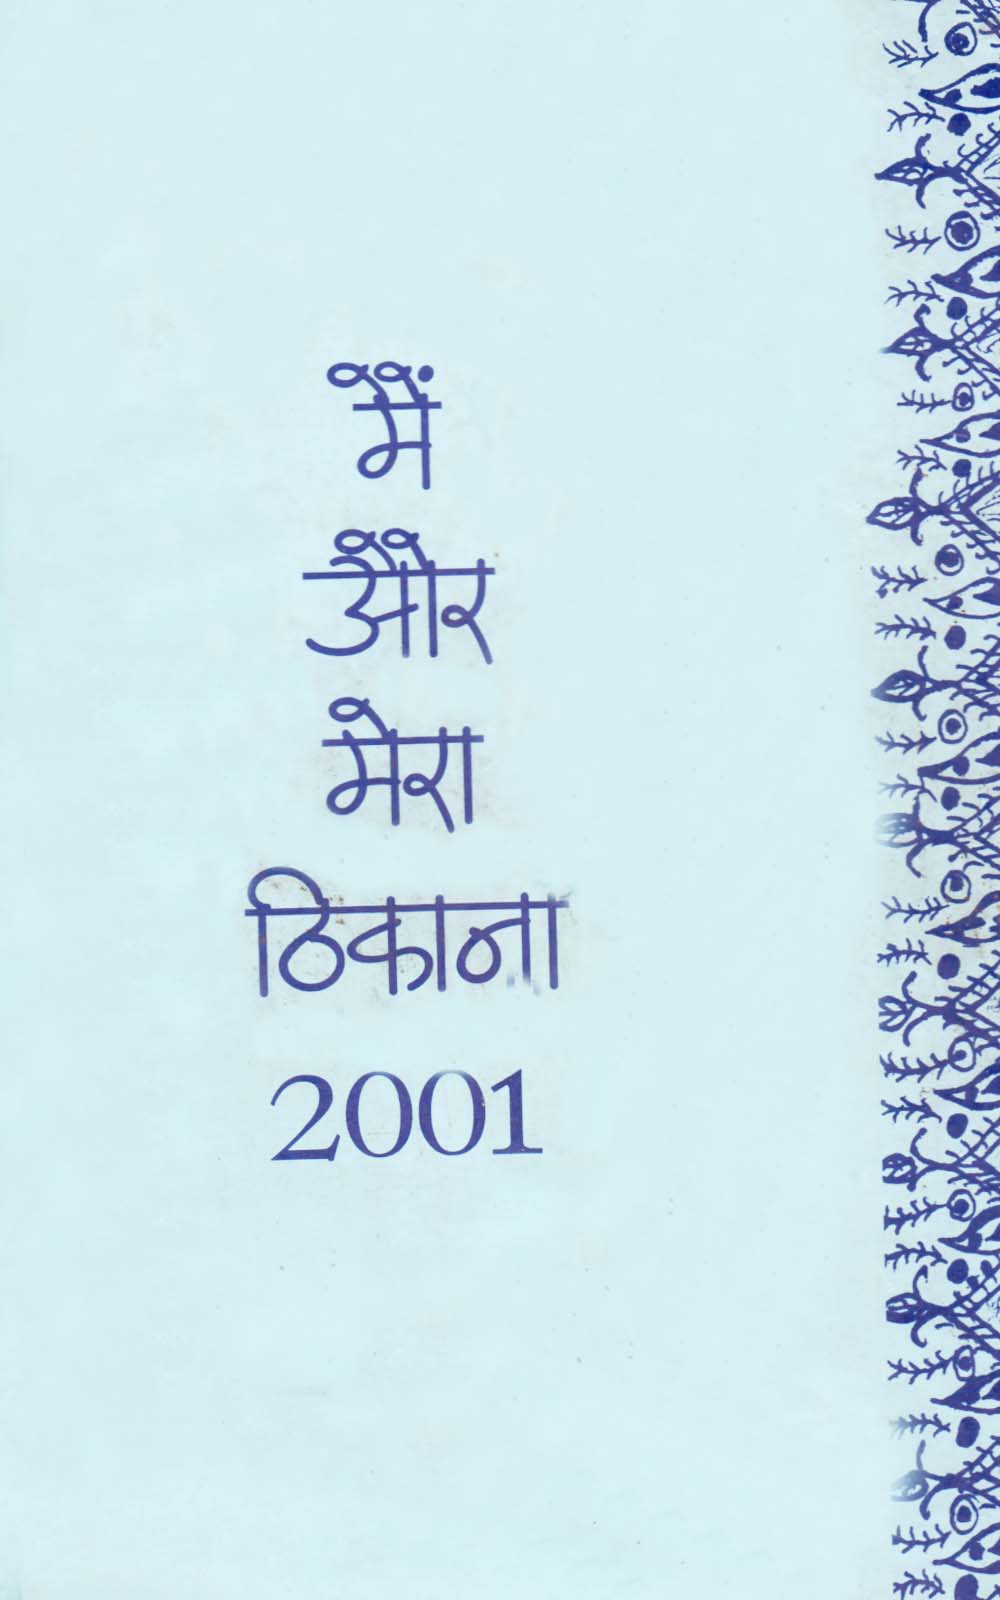 मैं
और
मेरा
ठिकाना
2001